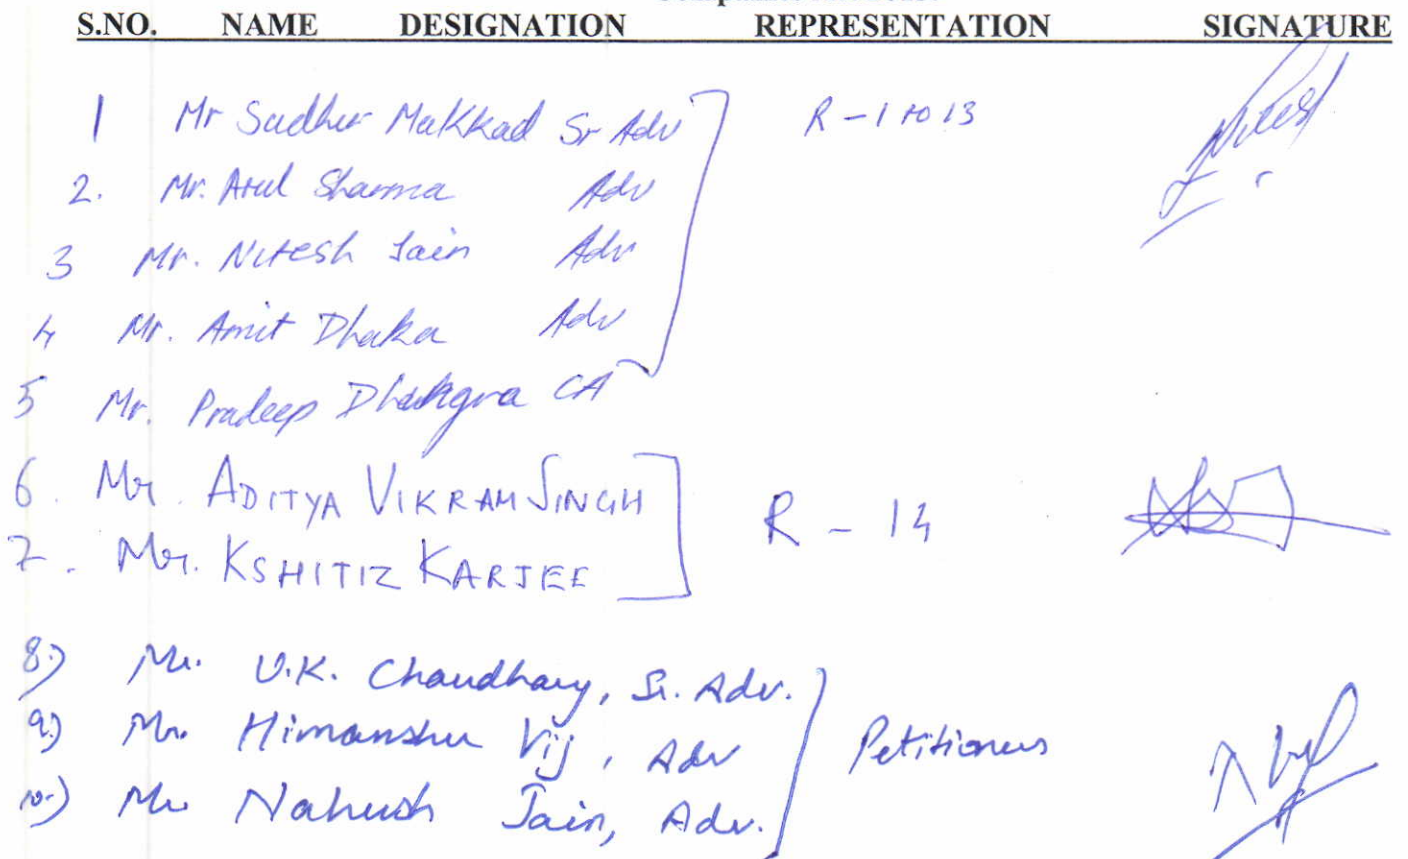 S.NO. NAME DESIGNATION REPRESENTATION SIGNATURE
1 Mr Sudhir Makkad Sr Adv R-1 to 13
2. Mr. Atul Sharma Adv
3 Mr. Nitesh Jain Adv
4 Mr. Amit Dhaka Adv
5 Mr. Pradeep CA
6. Mr. ADITYA VIKRAM SINGH R - 14
7. Mr. KSHITIZ KARJEE
8.) Mr. U.K. Chaudhary, Sr. Adv.
9.) Mr. Himanshu Vij, Adv Petitioners
10.) Mr Nahush Jain, Adv.